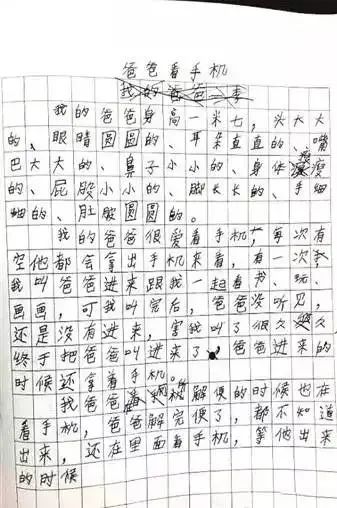 爸爸看手机
我的爸爸
我的爸爸身高一米七，头大大
的、眼睛圆圆的、耳朵直直的、嘴
巴大大的、鼻子小小的、身体瘦瘦
的、屁股小小的、脚长长的、手细
细的、肚皮圆圆的。
我的爸爸很爱看手机，每次有
空他都会拿出手机来看，有一次，
我叫爸爸进来跟我一起看书、玩、
画画，可我叫完后，爸爸没听见，
还是没有进来，害我叫了很久
终于把爸爸叫进来了，爸爸进来的
时候还拿着手机。
我爸爸解便的时候也在
看手机，爸爸解完便了，都不知道
出来，还在里面看手机，等他出来
的时候